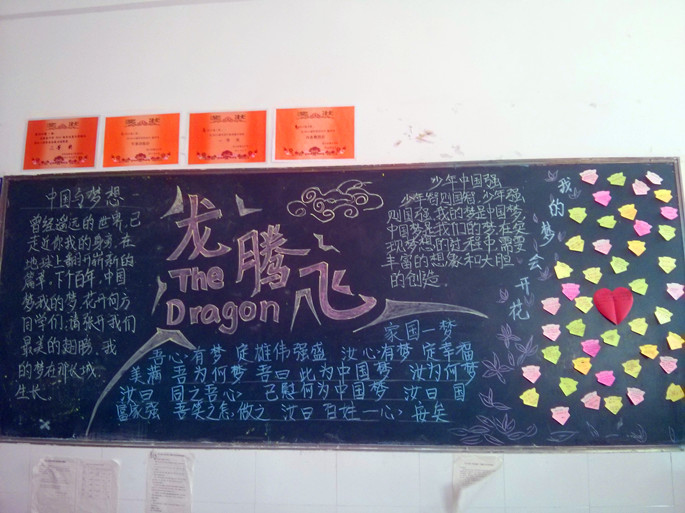 中国与梦想
曾经遥远的世界,已
走近你我的身旁,在
地球上翻开崭新的
篇章,下个百年,中国
梦我的梦,花开何方
同学们,请张开我们
最美的翅膀,我
的梦在那长城
生长.
龙腾飞
The
Dragon
少年中国强
少年智则国智,少年强
则国强,我的梦是中国梦,
中国梦是我们的梦,在实
现梦想的过程中需要
丰富的想象和大胆
的创造.
家国一梦
吾心有梦 定雄伟强盛 汝心有梦 定幸福
美满 吾为何梦 吾曰此为中国梦 汝为何梦
汝曰 同之吾心 己慰何为中国梦 汝曰 国
富家强 吾笑之 做之 汝曰 百姓一心 每矣
我的梦会开花